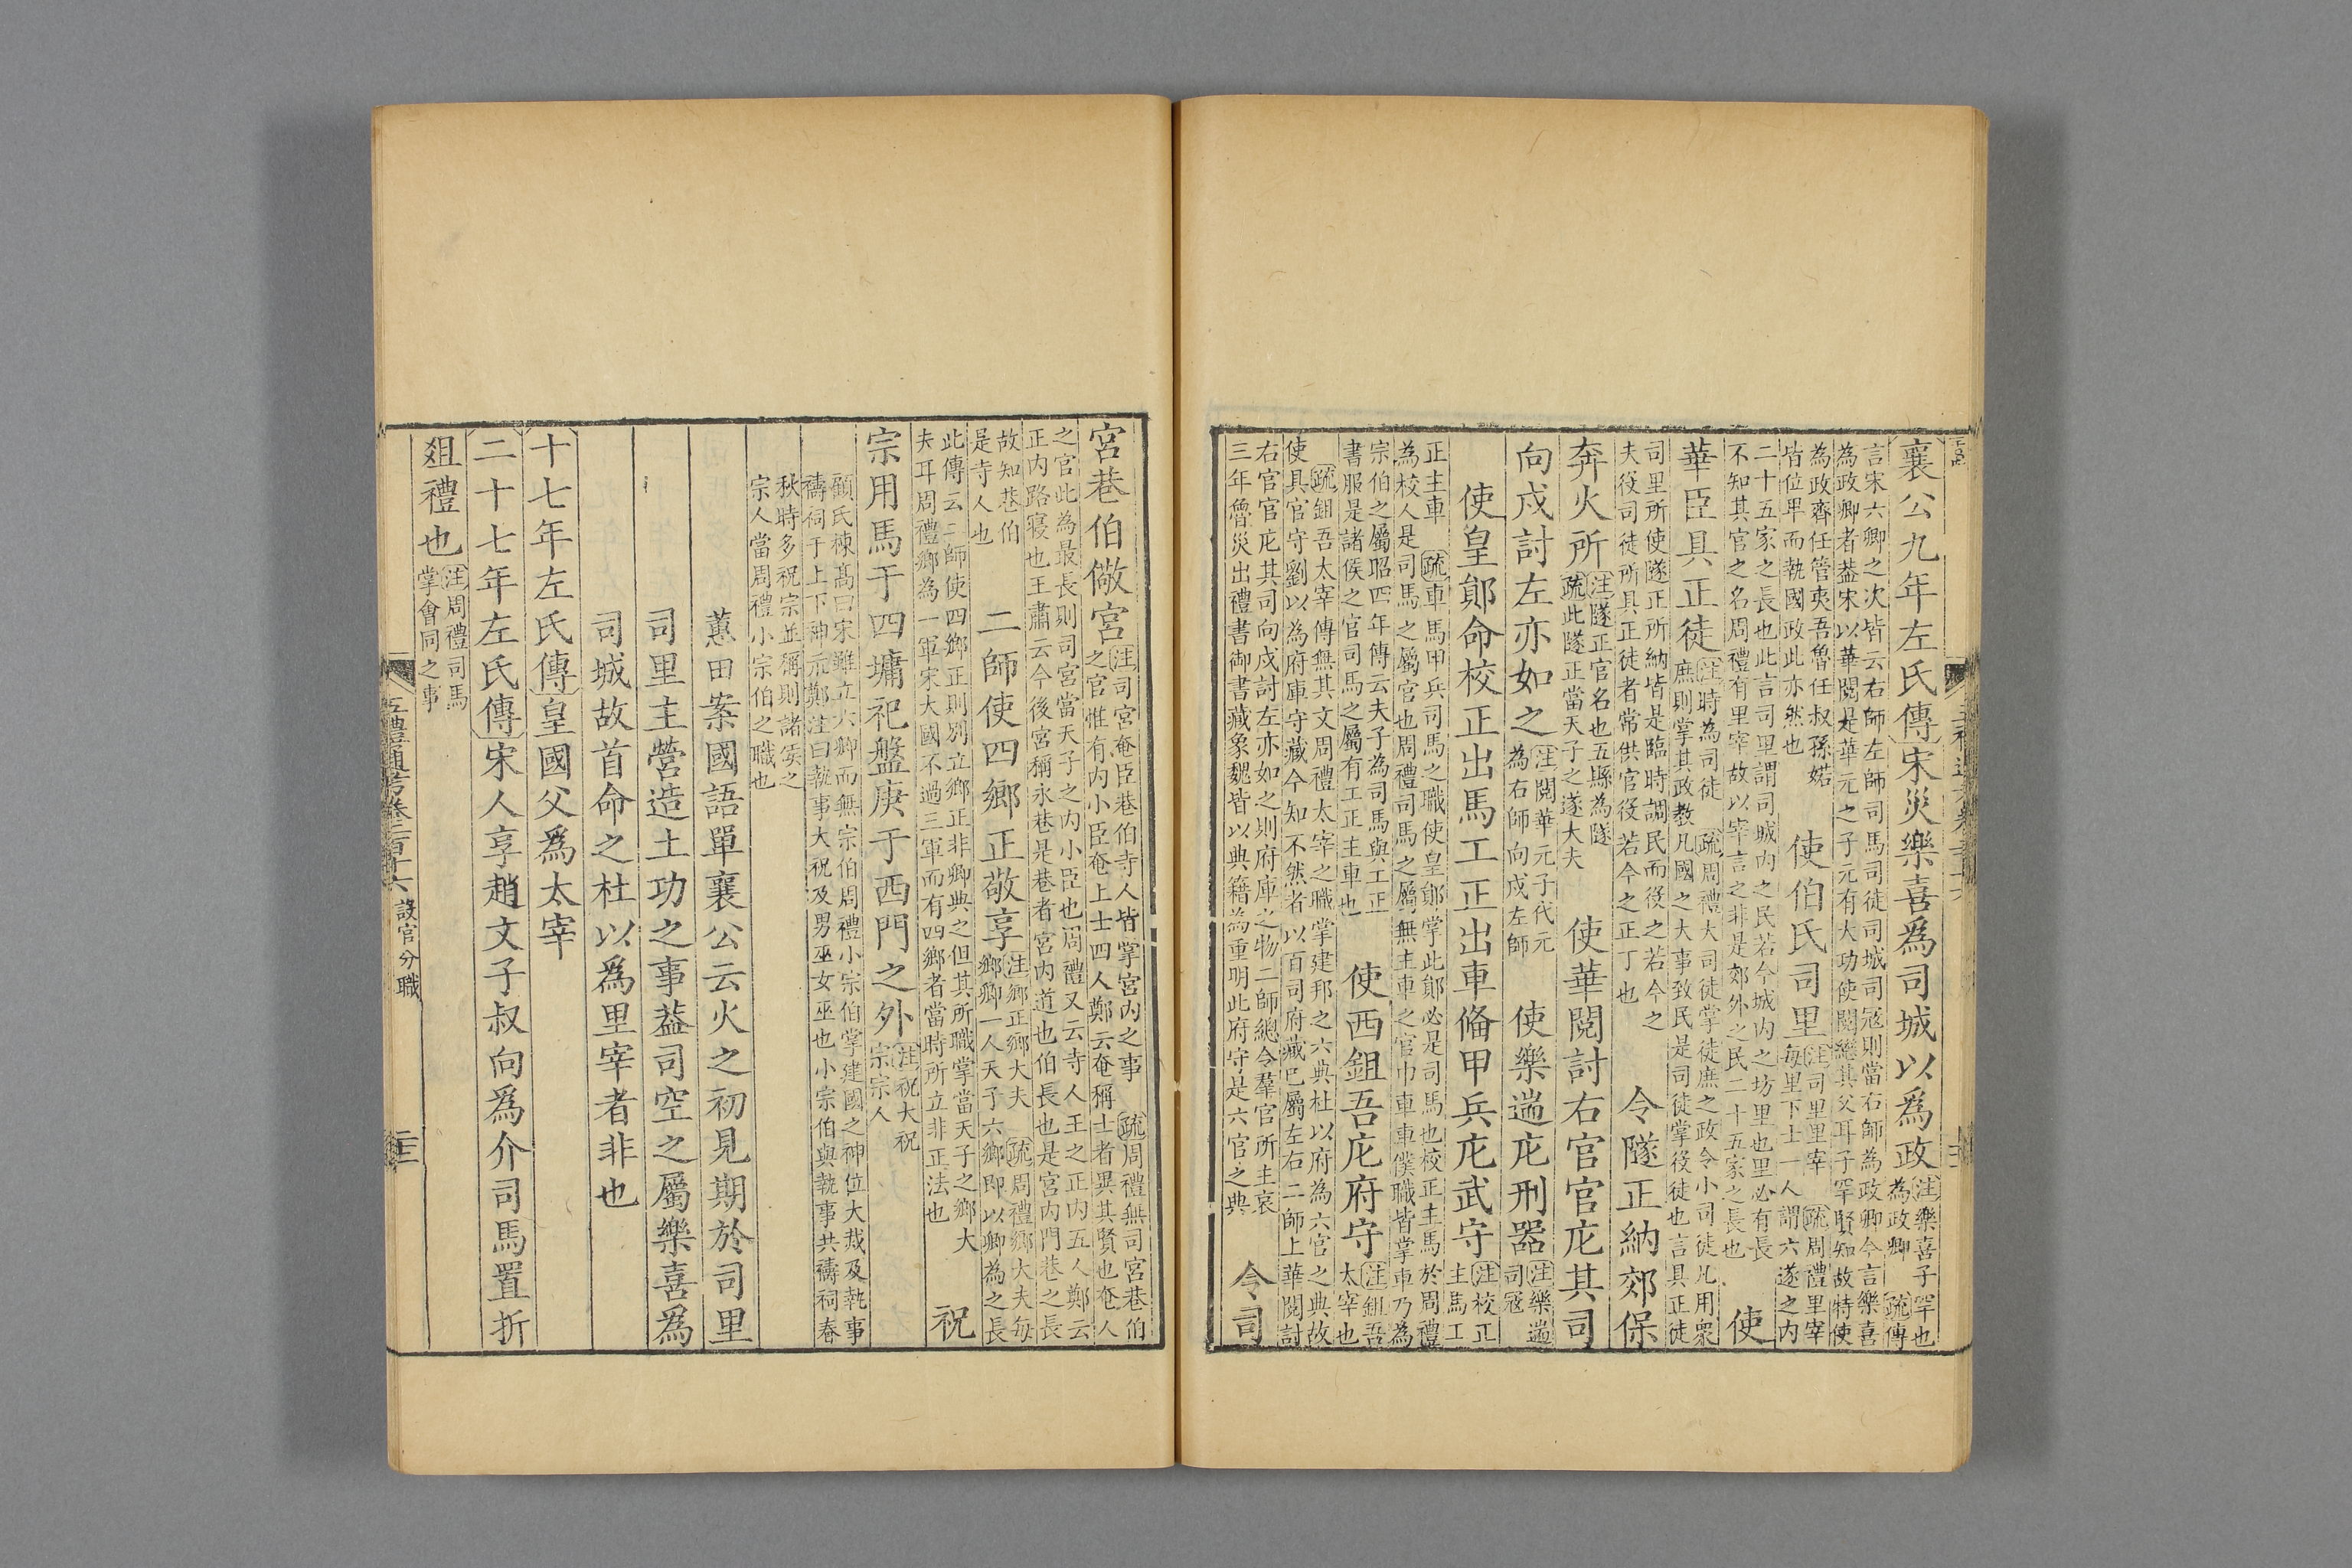 襄公九年左氏傳宋災樂喜爲司城以爲政注樂喜子罕也爲政卿疏傳
言宋六卿之次皆云右師左師司馬司徒司城司寇則當右師為政卿今言樂喜
為政卿者葢宋以華閱是華元之子元有大功使閱繼其父耳子罕賢知故特使
為政齊任管夷吾魯任叔孫婼
皆位卑而執國政此亦然也
使伯氏司里注司里里宰疏周禮里宰
每里下士一人謂六遂之内
二十五家之長也此言司里謂司城内之民若今城内之坊里也里必有長
不知其官之名周禮有里宰故以宰言之非是郊外之民二十五家之長也
使
華臣具正徒注時為司徒疏周禮大司徒掌徒庶之政令小司徒凡用衆
庶則掌其政教凡國之大事致民是司徒掌役徒也言具正徒
司里所使隧正所納皆是臨時調民而役之若今之
夫役司徒所具正徒者常供官役若今之正丁也
令隧正納郊保
奔火所注隧正官名也五縣為隧
疏此隧正當天子之遂大夫
使華閱討右官官庀其司
向戍討左亦如之注閱華元子代元
為右師向戍左師
使樂遄庀刑器注樂遄
司寇
使皇鄖命校正出馬工正出車俻甲兵庀武守注校正
主馬工
正主車疏車馬甲兵司馬之職使皇鄖掌此鄖必是司馬也校正主馬於周禮
為校人是司馬之屬官也周禮司馬之屬無主車之官巾車車僕職皆掌車乃為
宗伯之屬昭四年傳云夫子為司馬與工正
書服是諸侯之官司馬之屬有工正主車也
使西鉏吾庀府守注鉏吾
太宰也
疏鉏吾太宰傳無其文周禮太宰之職掌建邦之六典杜以府為六官之典故
使具官守劉以為府庫守藏今知不然者以百司府藏已屬左右二師上華閱討
右官官庀其司向戍討左亦如之則府庫之物二師總令羣官所主哀
三年魯災出禮書御書藏象魏皆以典籍為重明此府守是六官之典
令司
宮巷伯儆宮注司宮奄臣巷伯寺人皆掌宮内之事疏周禮無司宮巷伯
之官惟有内小臣奄上士四人鄭云奄稱士者異其賢也奄人
之官此為最長則司宮當天子之内小臣也周禮又云寺人王之正内五人鄭云
正内路寢也王肅云今後宮稱永巷是巷者宮内道也伯長也是宮内門巷之長
故知巷伯
是寺人也
二師使四鄉正敬享注鄉正鄉大夫疏周禮鄉大夫每
鄉卿一人天子六鄉即以卿為之長
此傳云二師使四鄉正則別立鄉正非卿典之但其所職掌當天子之鄉大
夫耳周禮鄉為一軍宋大國不過三軍而有四鄉者當時所立非正法也
祝
宗用馬于四墉祀盤庚于西門之外注祝大祝
宗宗人
顧氏棟高曰宋雖立六卿而無宗伯周禮小宗伯掌建國之神位大烖及執事
禱祠于上下神示鄭注曰執事大祝及男巫女巫也小宗伯與執事共禱祠春
秋時多祝宗並稱則諸侯之
宗人當周禮小宗伯之職也
蕙田案國語單襄公云火之初見期於司里
司里主營造土功之事葢司空之屬樂喜爲
司城故首命之杜以爲里宰者非也
十七年左氏傳皇國父爲太宰
二十七年左氏傳宋人享趙文子叔向爲介司馬置折
俎禮也注周禮司馬
掌會同之事
五禮通考卷二百十六 設官分職